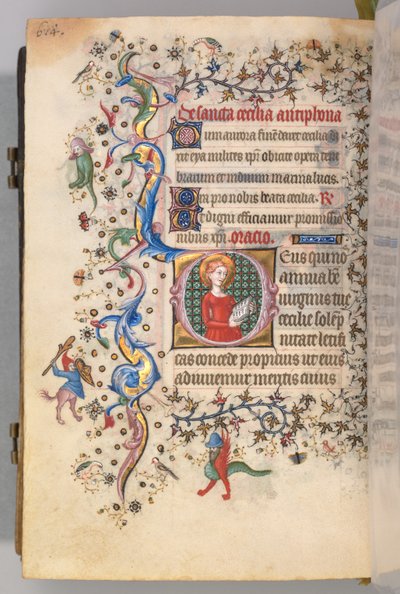 674.
De sancta cecilia antiphona
Dum aurora fine daret cecilia di
xit eya milites xpi abicite opera tene
brarum et induimini arma lucis.
Ora pro nobis beata cecilia. R
Ut digni efficiamur promissio
nibus xpi. oracio.
Deus qui no
s annua be
virginis tue
cecilie solep
nitate letifi
cas concede propicius ut eius
adiuvemur meritis cuius